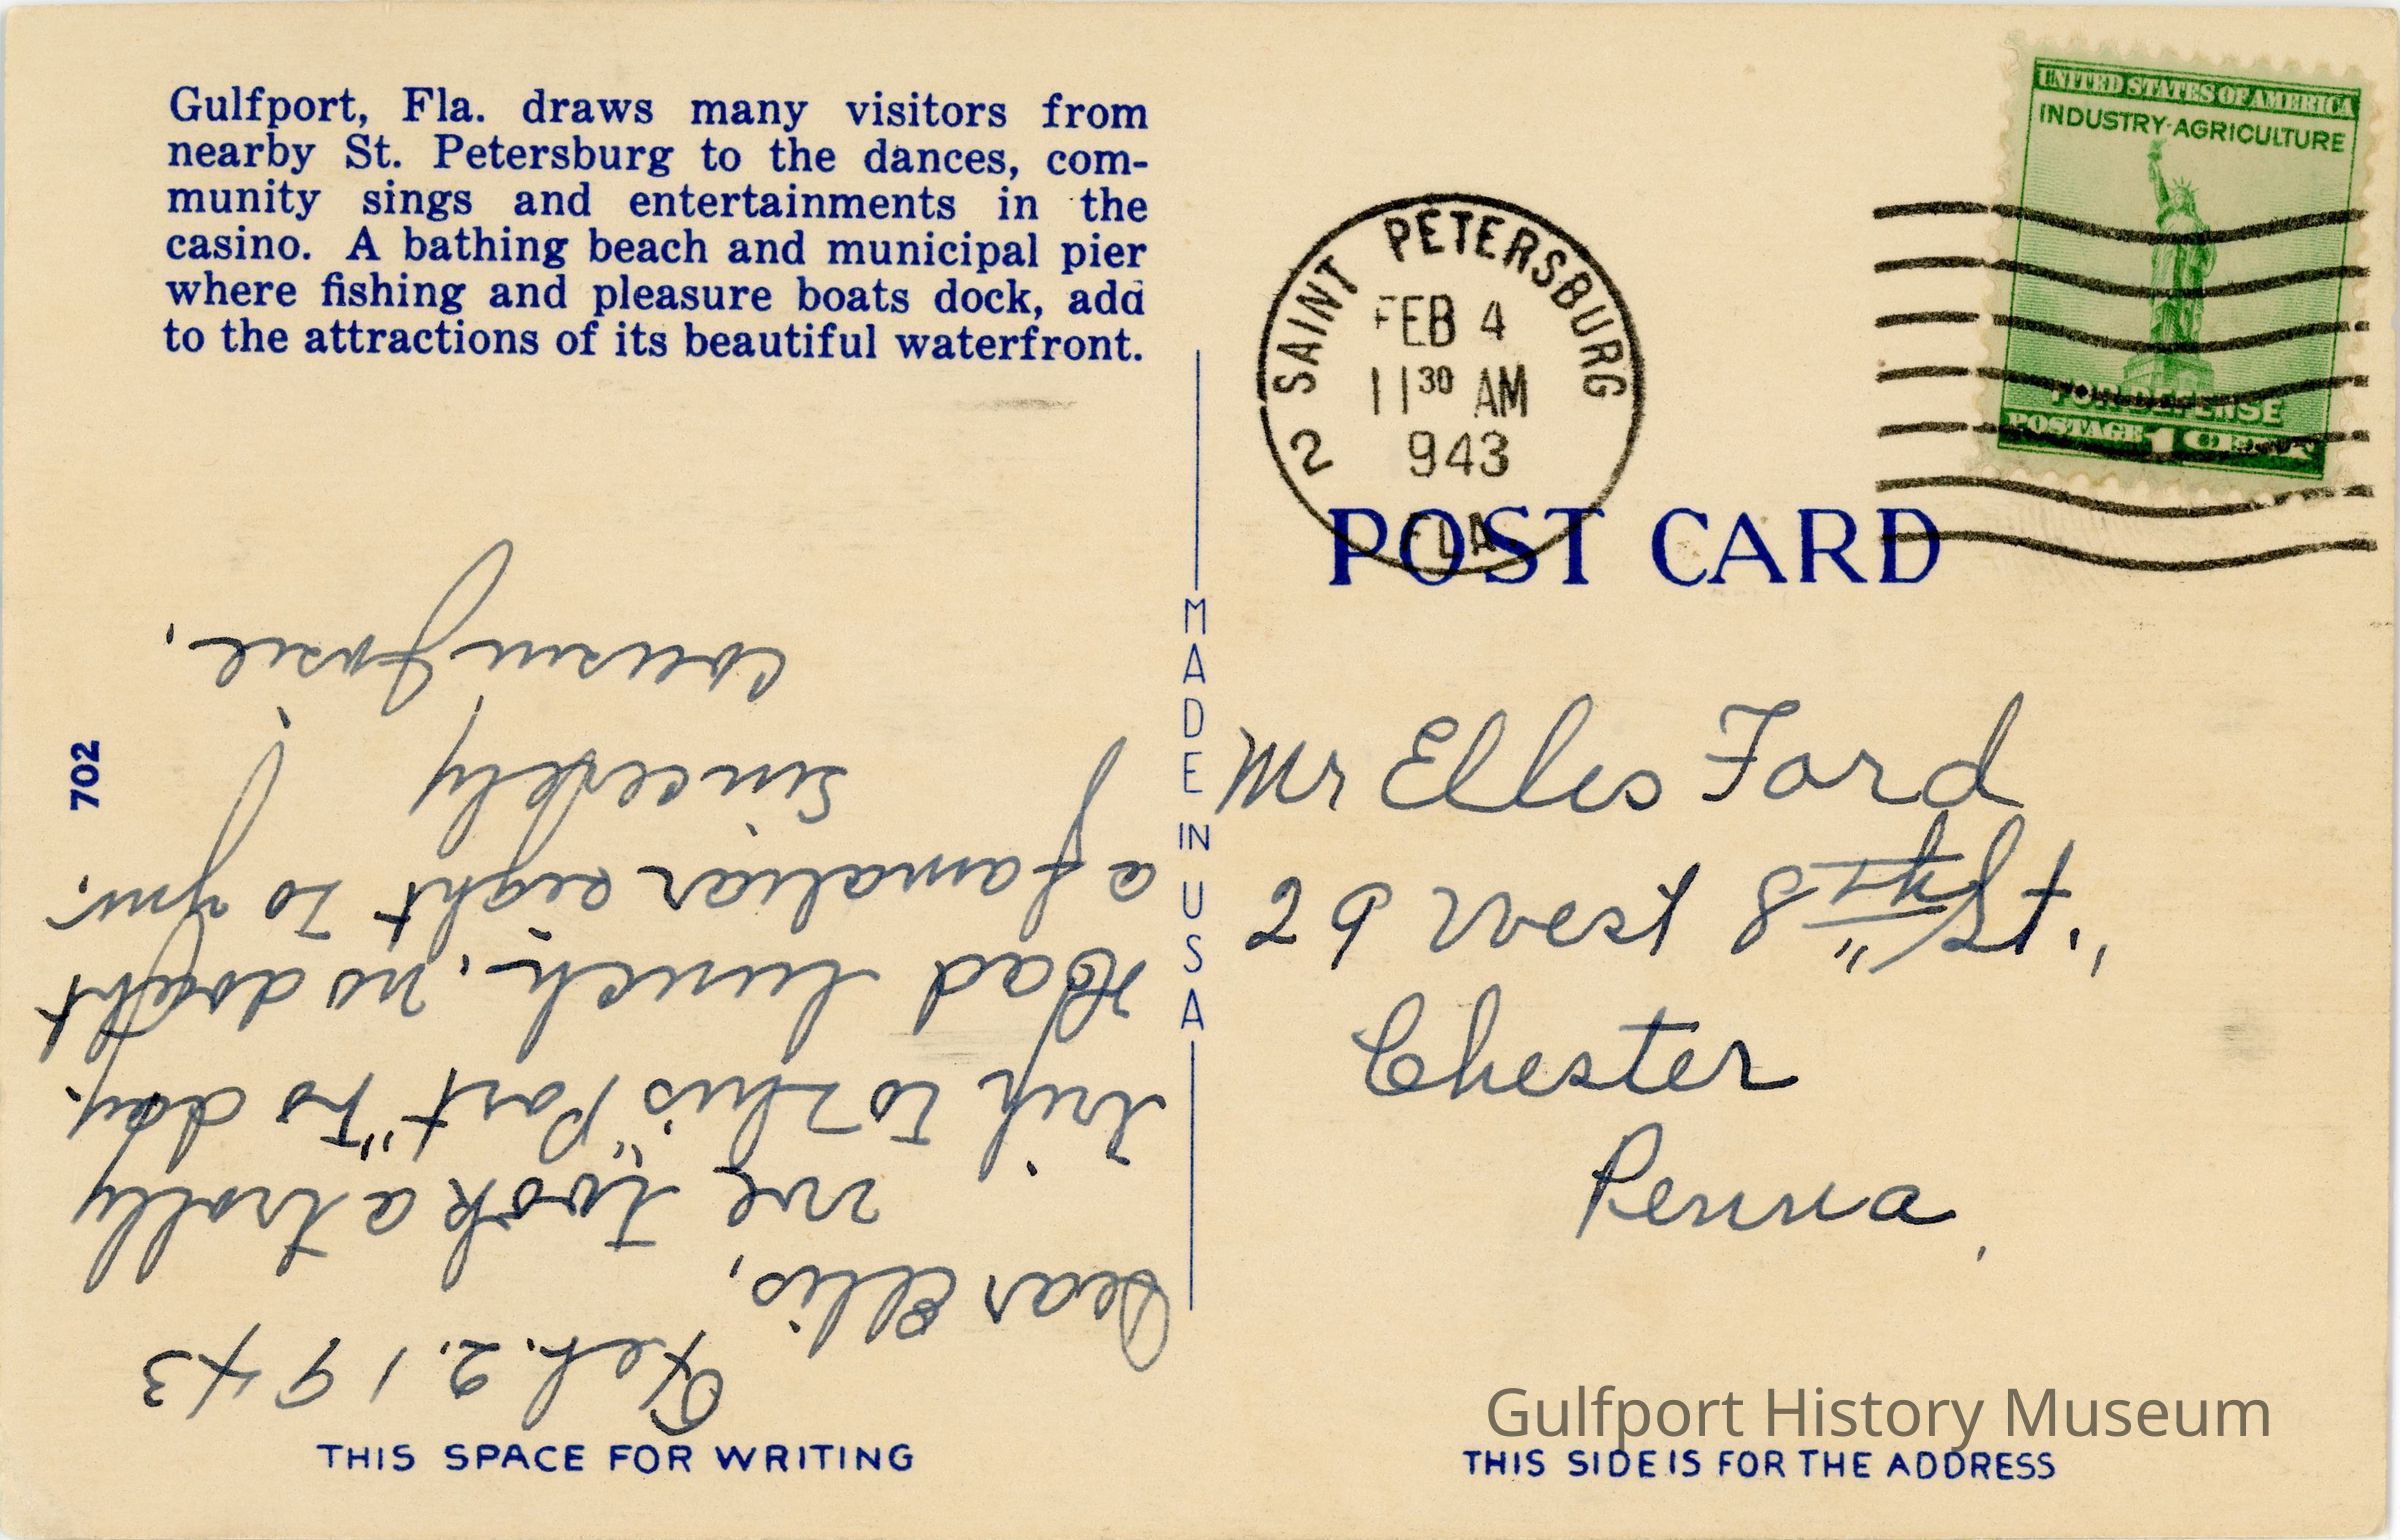 Gulfport, Fla. draws many visitors from
nearby St. Petersburg to the dances, com-
munity sings and entertainments in the
casino. A bathing beach and municipal pier
where fishing and pleasure boats dock, add
to the attractions of its beautiful waterfront.
702
Feb. 2. 1943
Dear Ellis,
we took a trolly
trip to this "Port" To day.
Had lunch. no doubt
a familiar sight to you.
Sincerely
Cousin Josie.
MADE IN USA
UNITED STATES OF AMERICA
INDUSTRY-AGRICULTURE
FOR DEFENSE
POSTAGE 1 CENT
SAINT PETERSBURG
FEB 4
11 30 AM
943
2
FLA
POST CARD
Mr Ellis Ford
26 West 8th St,
Chester
Penna,
Gulfport History Museum
THIS SPACE FOR WRITING
THIS SIDE IS FOR THE ADDRESS